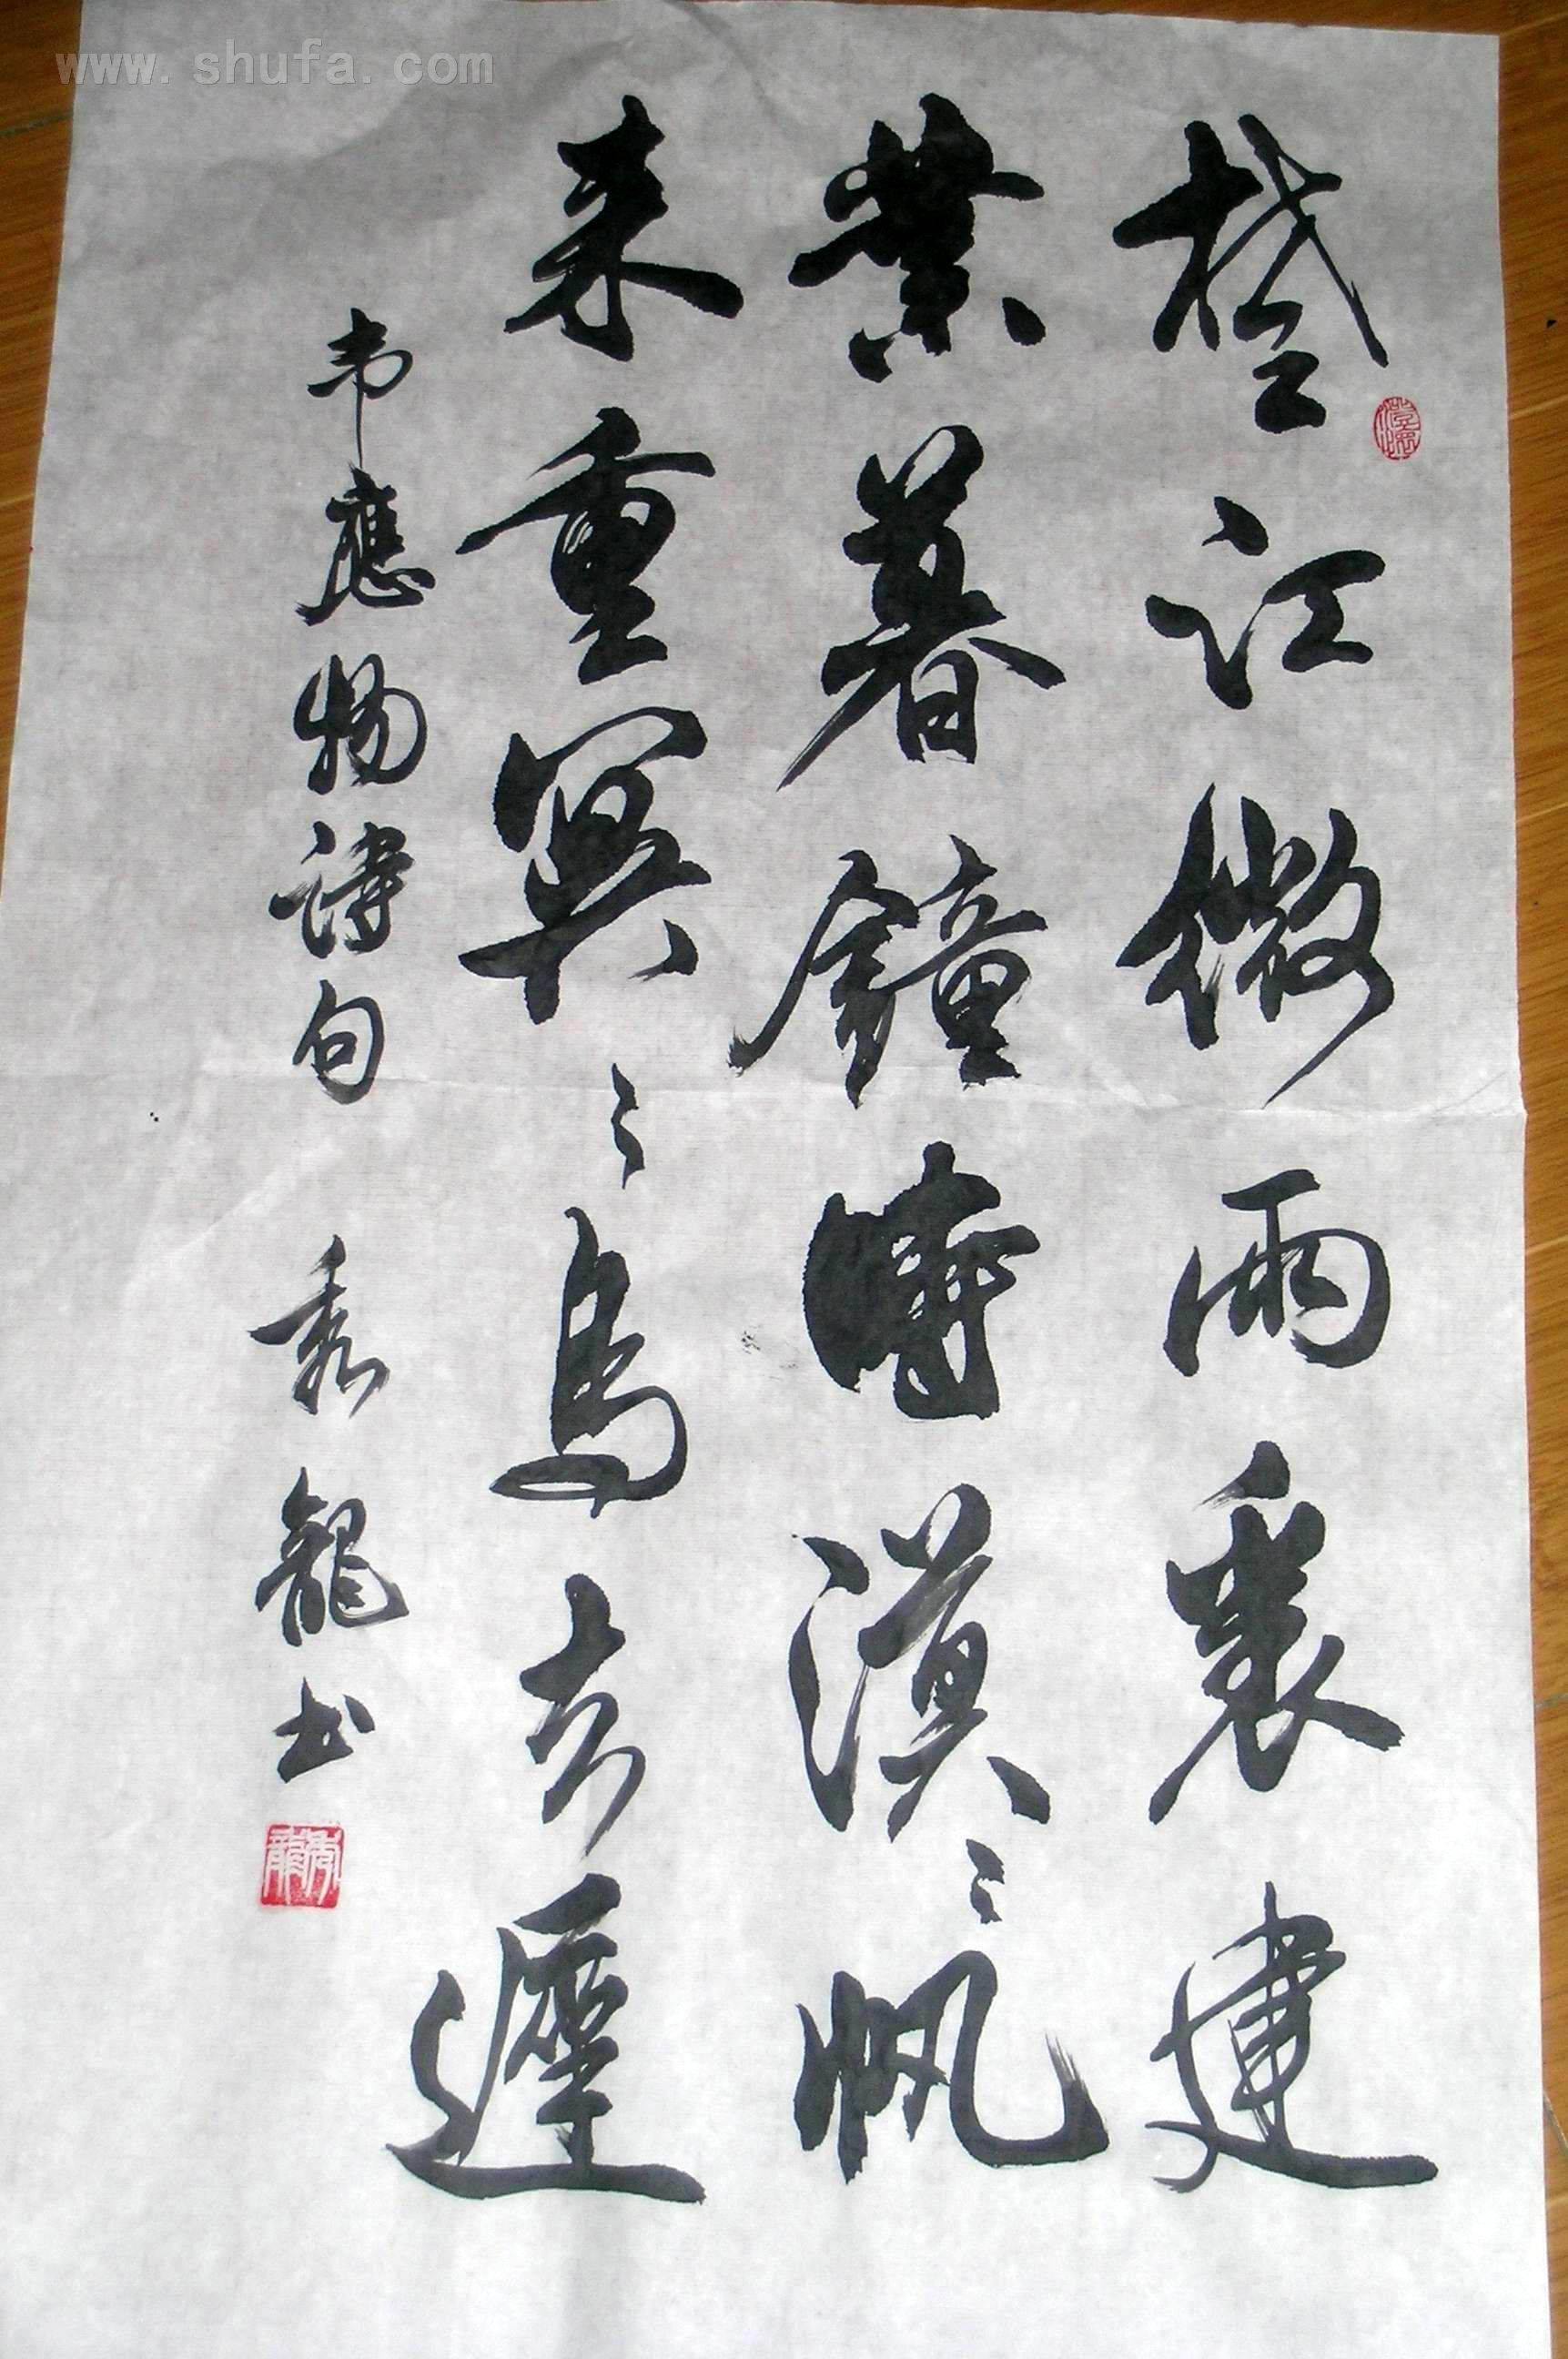 楚江微雨裏建
業暮鐘時漠〻帆
来重冥〻鳥去遲
韦應物詩句 秀龍书
www.shufa.com